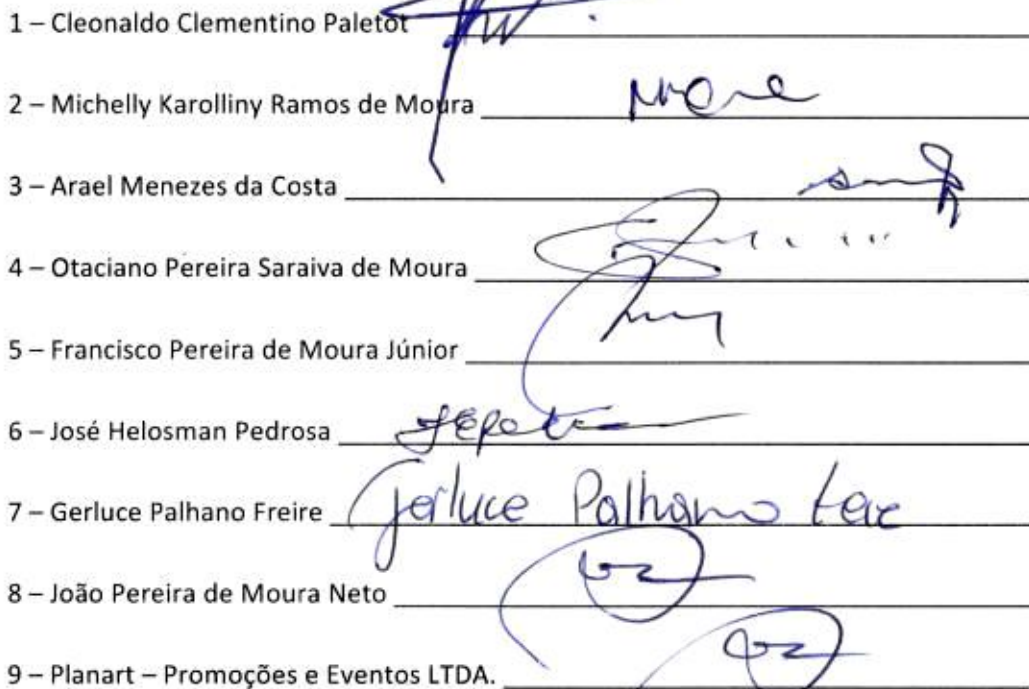 1 – Cleonaldo Clementino Paletot
2 – Michelly Karolliny Ramos de Moura
3 – Arael Menezes da Costa
4 – Otaciano Pereira Saraiva de Moura
5 – Francisco Pereira de Moura Júnior
6 – José Helosman Pedrosa
7 – Gerluce Palhano Freire Gerluce Palhano
8 – João Pereira de Moura Neto
9 – Planart – Promoções e Eventos LTDA.